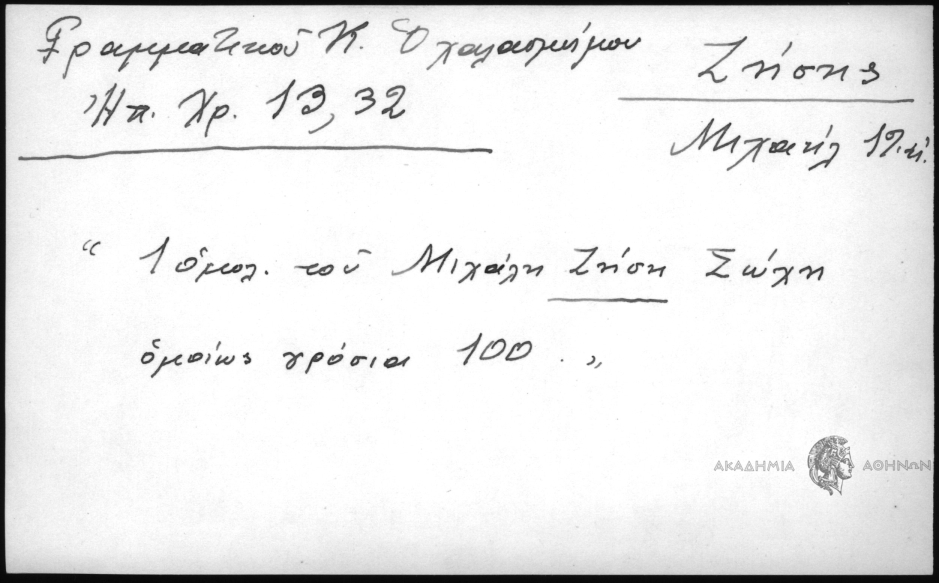 Γραμματικοῦ Κ. Ὁ χαλασμένου
Ἠπ. Χρ. 13, 32
Ζήσης
Μιχαήλ
“ 1 ὁμολ. τοῦ Μιχάλη Ζήση Σώχη
ὁμοίως γρόσια 100 . „
ΑΚΑΔΗΜΙΑ ΑΘΗΝΩΝ